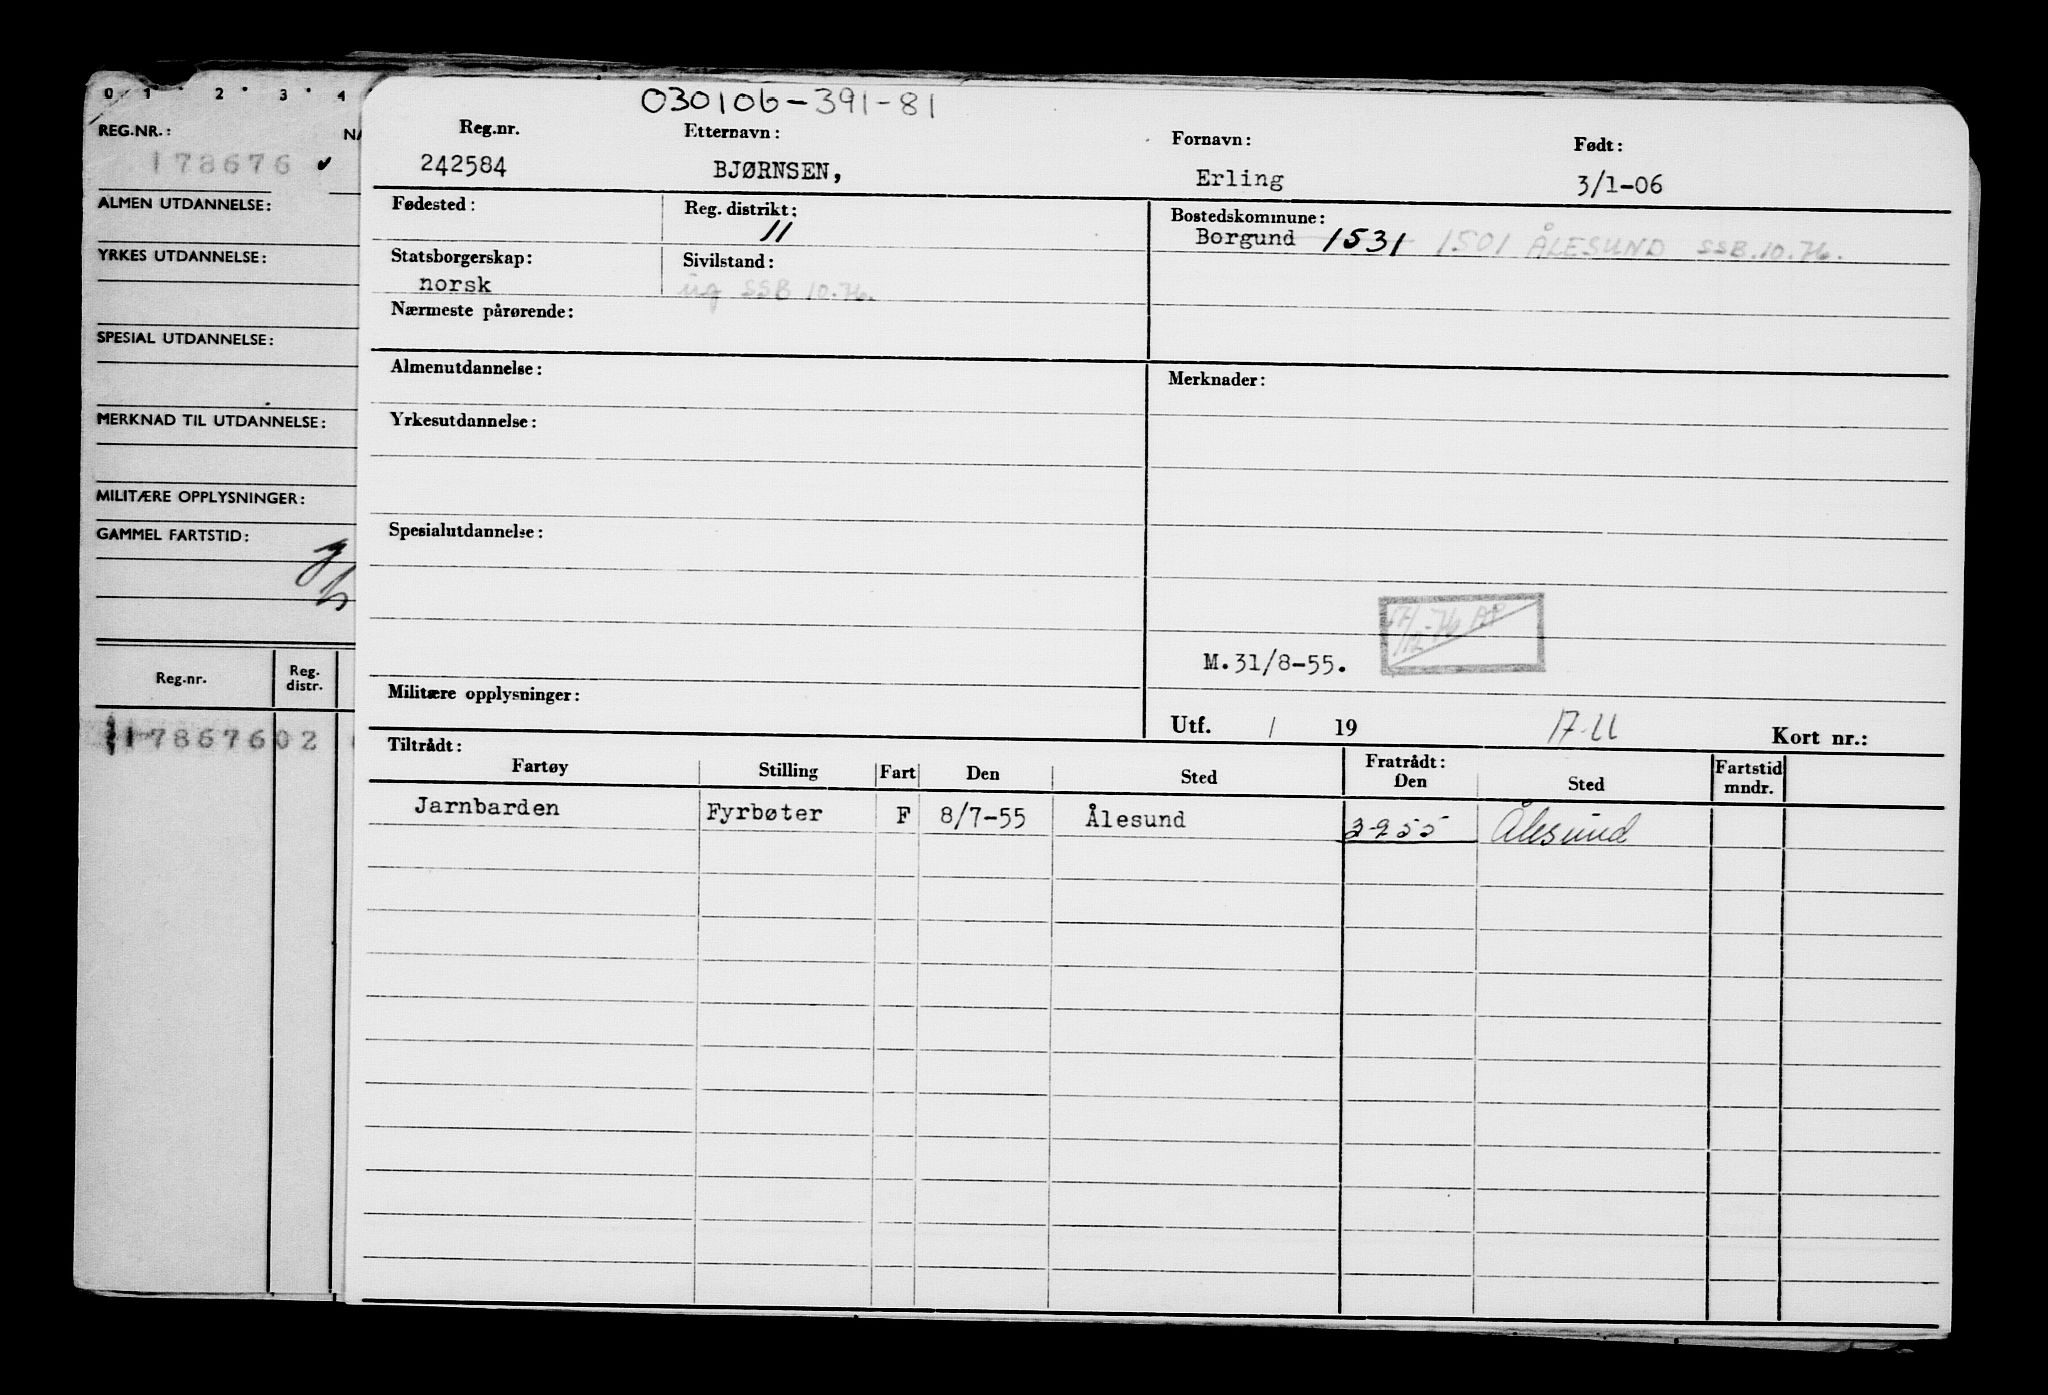 0 1 2 3 4
REG.NR.:
NA
178676 ✓
ALMEN UTDANNELSE:
YRKES UTDANNELSE:
SPESIAL UTDANNELSE:
MERKNAD TIL UTDANNELSE:
MILITÆRE OPPLYSNINGER:
GAMMEL FARTSTID:
Reg.nr. Reg. distr.
17867602
030106-391-81
Reg.nr. Etternavn: Fornavn: Født:
242584 BJØRNSEN, Erling 3/1-06
Fødested: Reg. distrikt: Bostedskommune:
11 Borgund 1531 1501 ÅLESUND SSB.10.76.
Statsborgerskap: Sivilstand:
norsk ug SSB 10.76.
Nærmeste pårørende:
Almenutdannelse: Merknader:
Yrkesutdannelse:
Spesialutdannelse:
M.31/8-55.
Militære opplysninger:
Utf. / 19 17-11 Kort nr.:
Tiltrådt: Fratrådt:
Fartøy Stilling Fart Den Sted Den Sted Fartstid mndr.
Jarnbarden Fyrbøter F 8/7-55 Ålesund 3-9 55 Ålesund